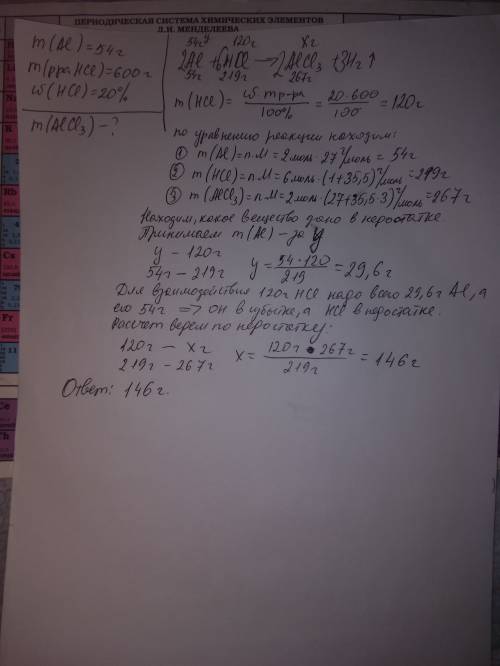 ПЕРИОДИЧЕСКАЯ СИСТЕМА ХИМИЧЕСКИХ ЭЛЕМЕНТОВ
Д.И. МЕНДЕЛЕЕВА
m(Al)=54г
m(рра HCl)=600г
ω(HCl)=20%
m(AlCl₃)-?
54г 120г xг
2Al+6HCl→2AlCl₃+3H₂↑
54г 219г 267г
m(HCl)= ω·mр-ра/100% = 20·600/100 = 120г
по уравнению реакции находим:
① m(Al)=n·M=2моль·27г/моль=54г
② m(HCl)=n·M=6моль·(1+35,5)г/моль=219г
③ m(AlCl₃)=n·M=2моль·(27+35,5·3)г/моль=267г
Находим, какое вещество дано в недостатке.
Принимаем m(Al)-за y
y-120г
54г-219г y= 54·120/219 =29,6г
Для взаимодействия 120г HCl надо всего 29,6г Al, а
его 54г ⇒ он в избытке, а HCl в недостатке.
Рассчёт ведем по недостатку:
120г - xг
219г - 267г x= 120г·267г/219г =146г
Ответ: 146г.
Rb
Cs
Fr
Ce
Th